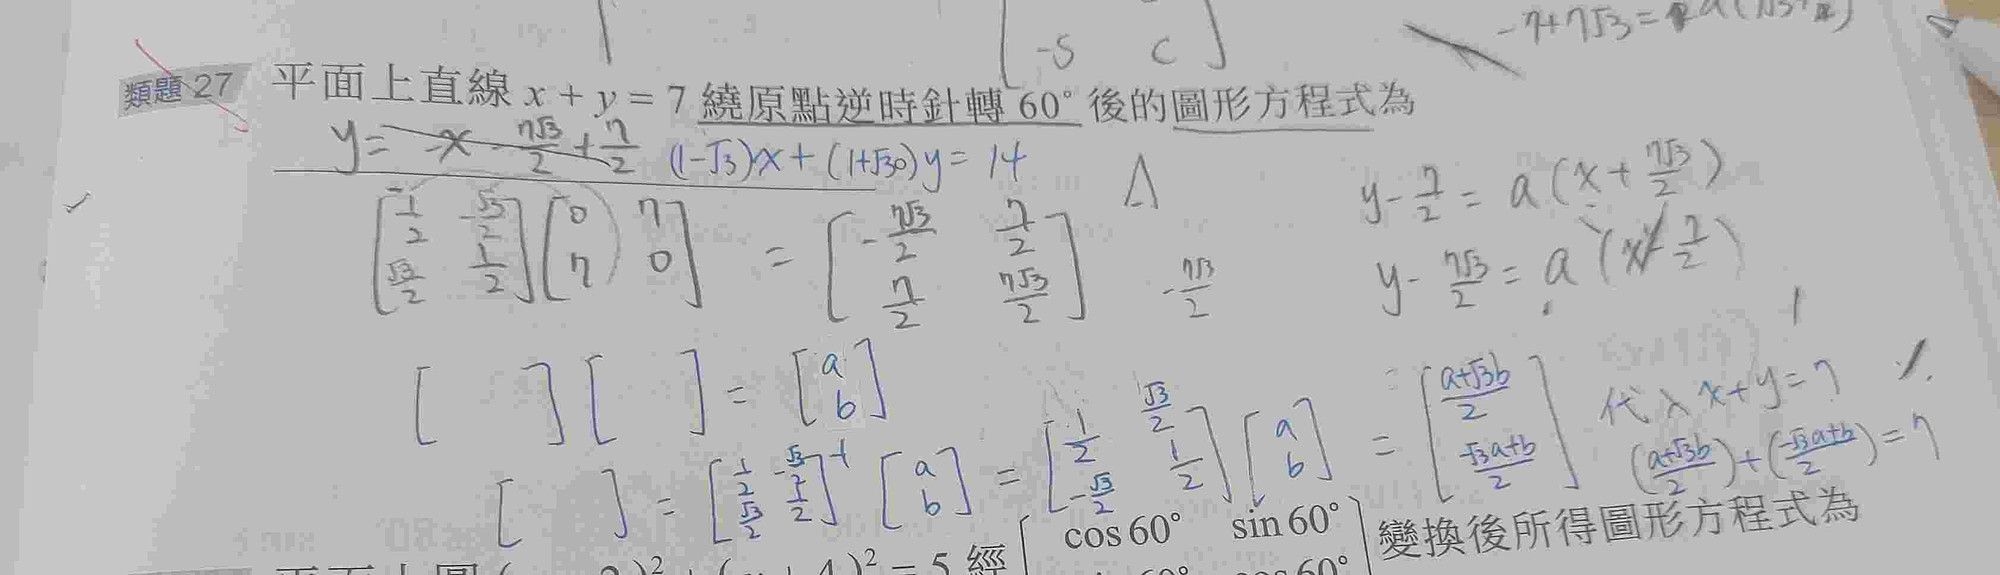 -S C
-7+7√3=
類題 27 平面上直線 x + y = 7 繞原點逆時針轉 60° 後的圖形方程式為
y= -x - 7√3/2 + 7/2 (1-√3)x + (1+√3)y = 14
y - 7/2 = a (x + 7√3/2)
[1/2 -√3/2 √3/2 1/2] [0 7 7 0] = [-7√3/2 7/2 7/2 7√3/2] -7√3/2
y - 7√3/2 = a (x - 7/2)
[ ] [ ] = [a b]
[ ] = [1/2 -√3/2 √3/2 1/2]⁻¹ [a b] = [1/2 √3/2 -√3/2 1/2] [a b] = [a+√3b/2 -√3a+b/2] 代入 x+y=7
(a+√3b/2)+(-√3a+b/2)=7
cos 60° sin 60° 變換後所得圖形方程式為
= 5 經